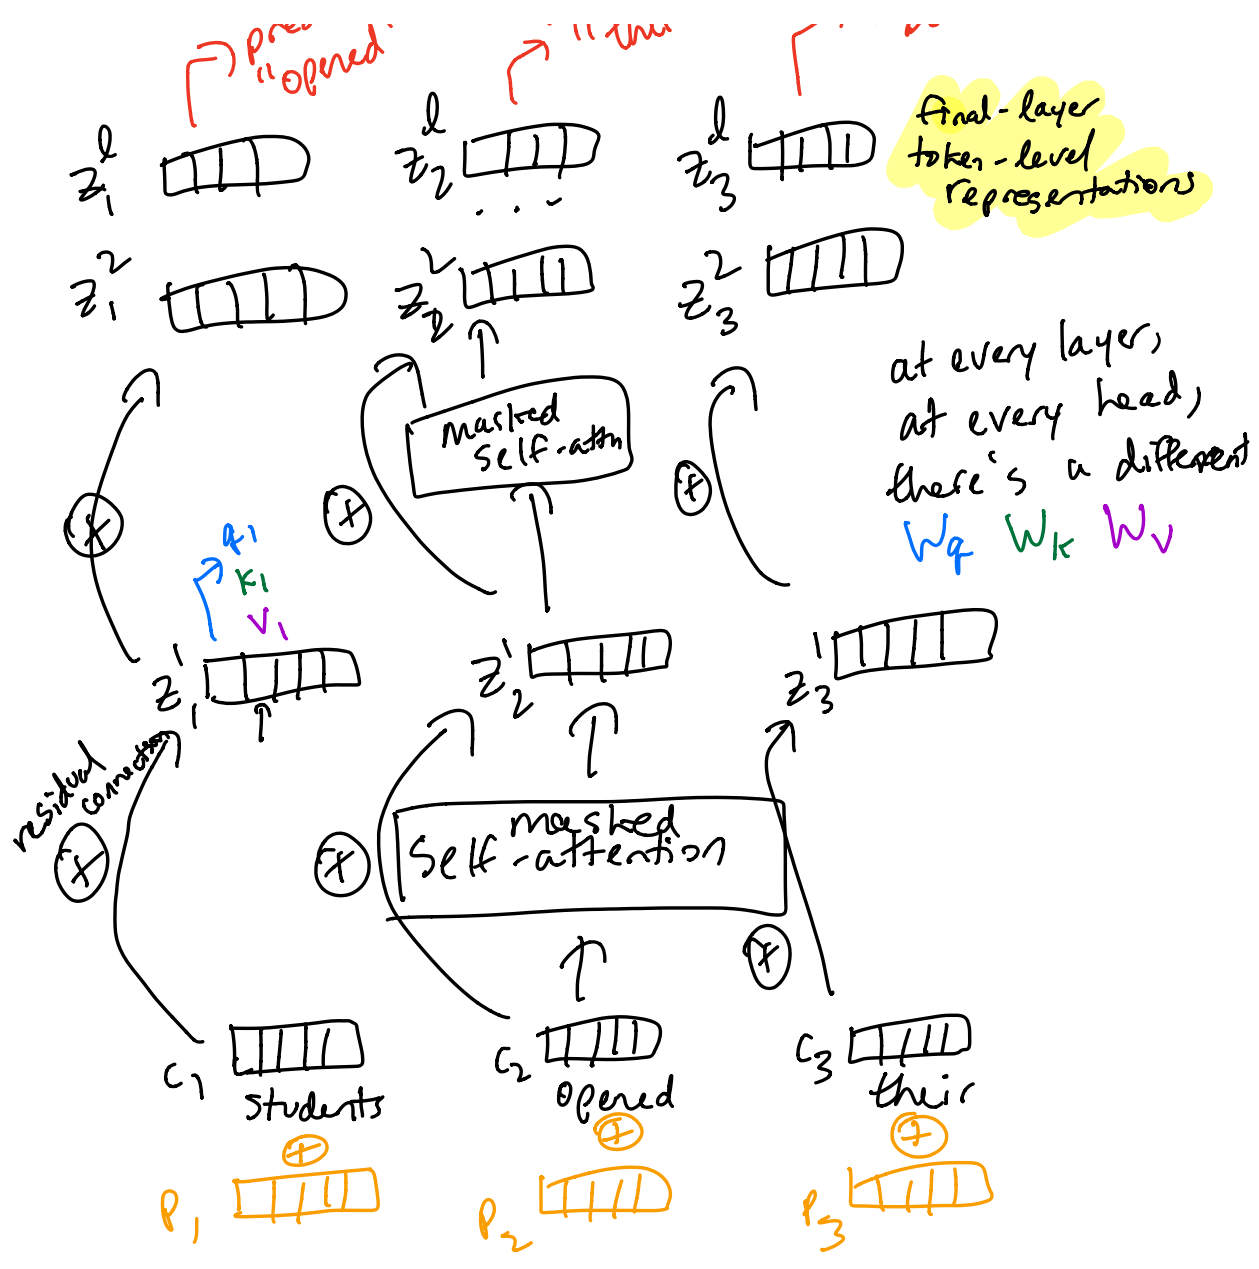 "opened
z₁ˡ
z₂ˡ
z₃ˡ
final-layer
token-level
representations
. . .
z₁²
z₂²
z₃²
at every layer,
at every head,
there's a different
Wq Wk Wv
masked
self-attn
+
+
+
q₁
k₁
v₁
z₁¹
z₂¹
z₃¹
residual
connection
masked
self-attention
+
+
+
c₁
students
c₂
opened
c₃
their
+
+
+
p₁
p₂
p₃